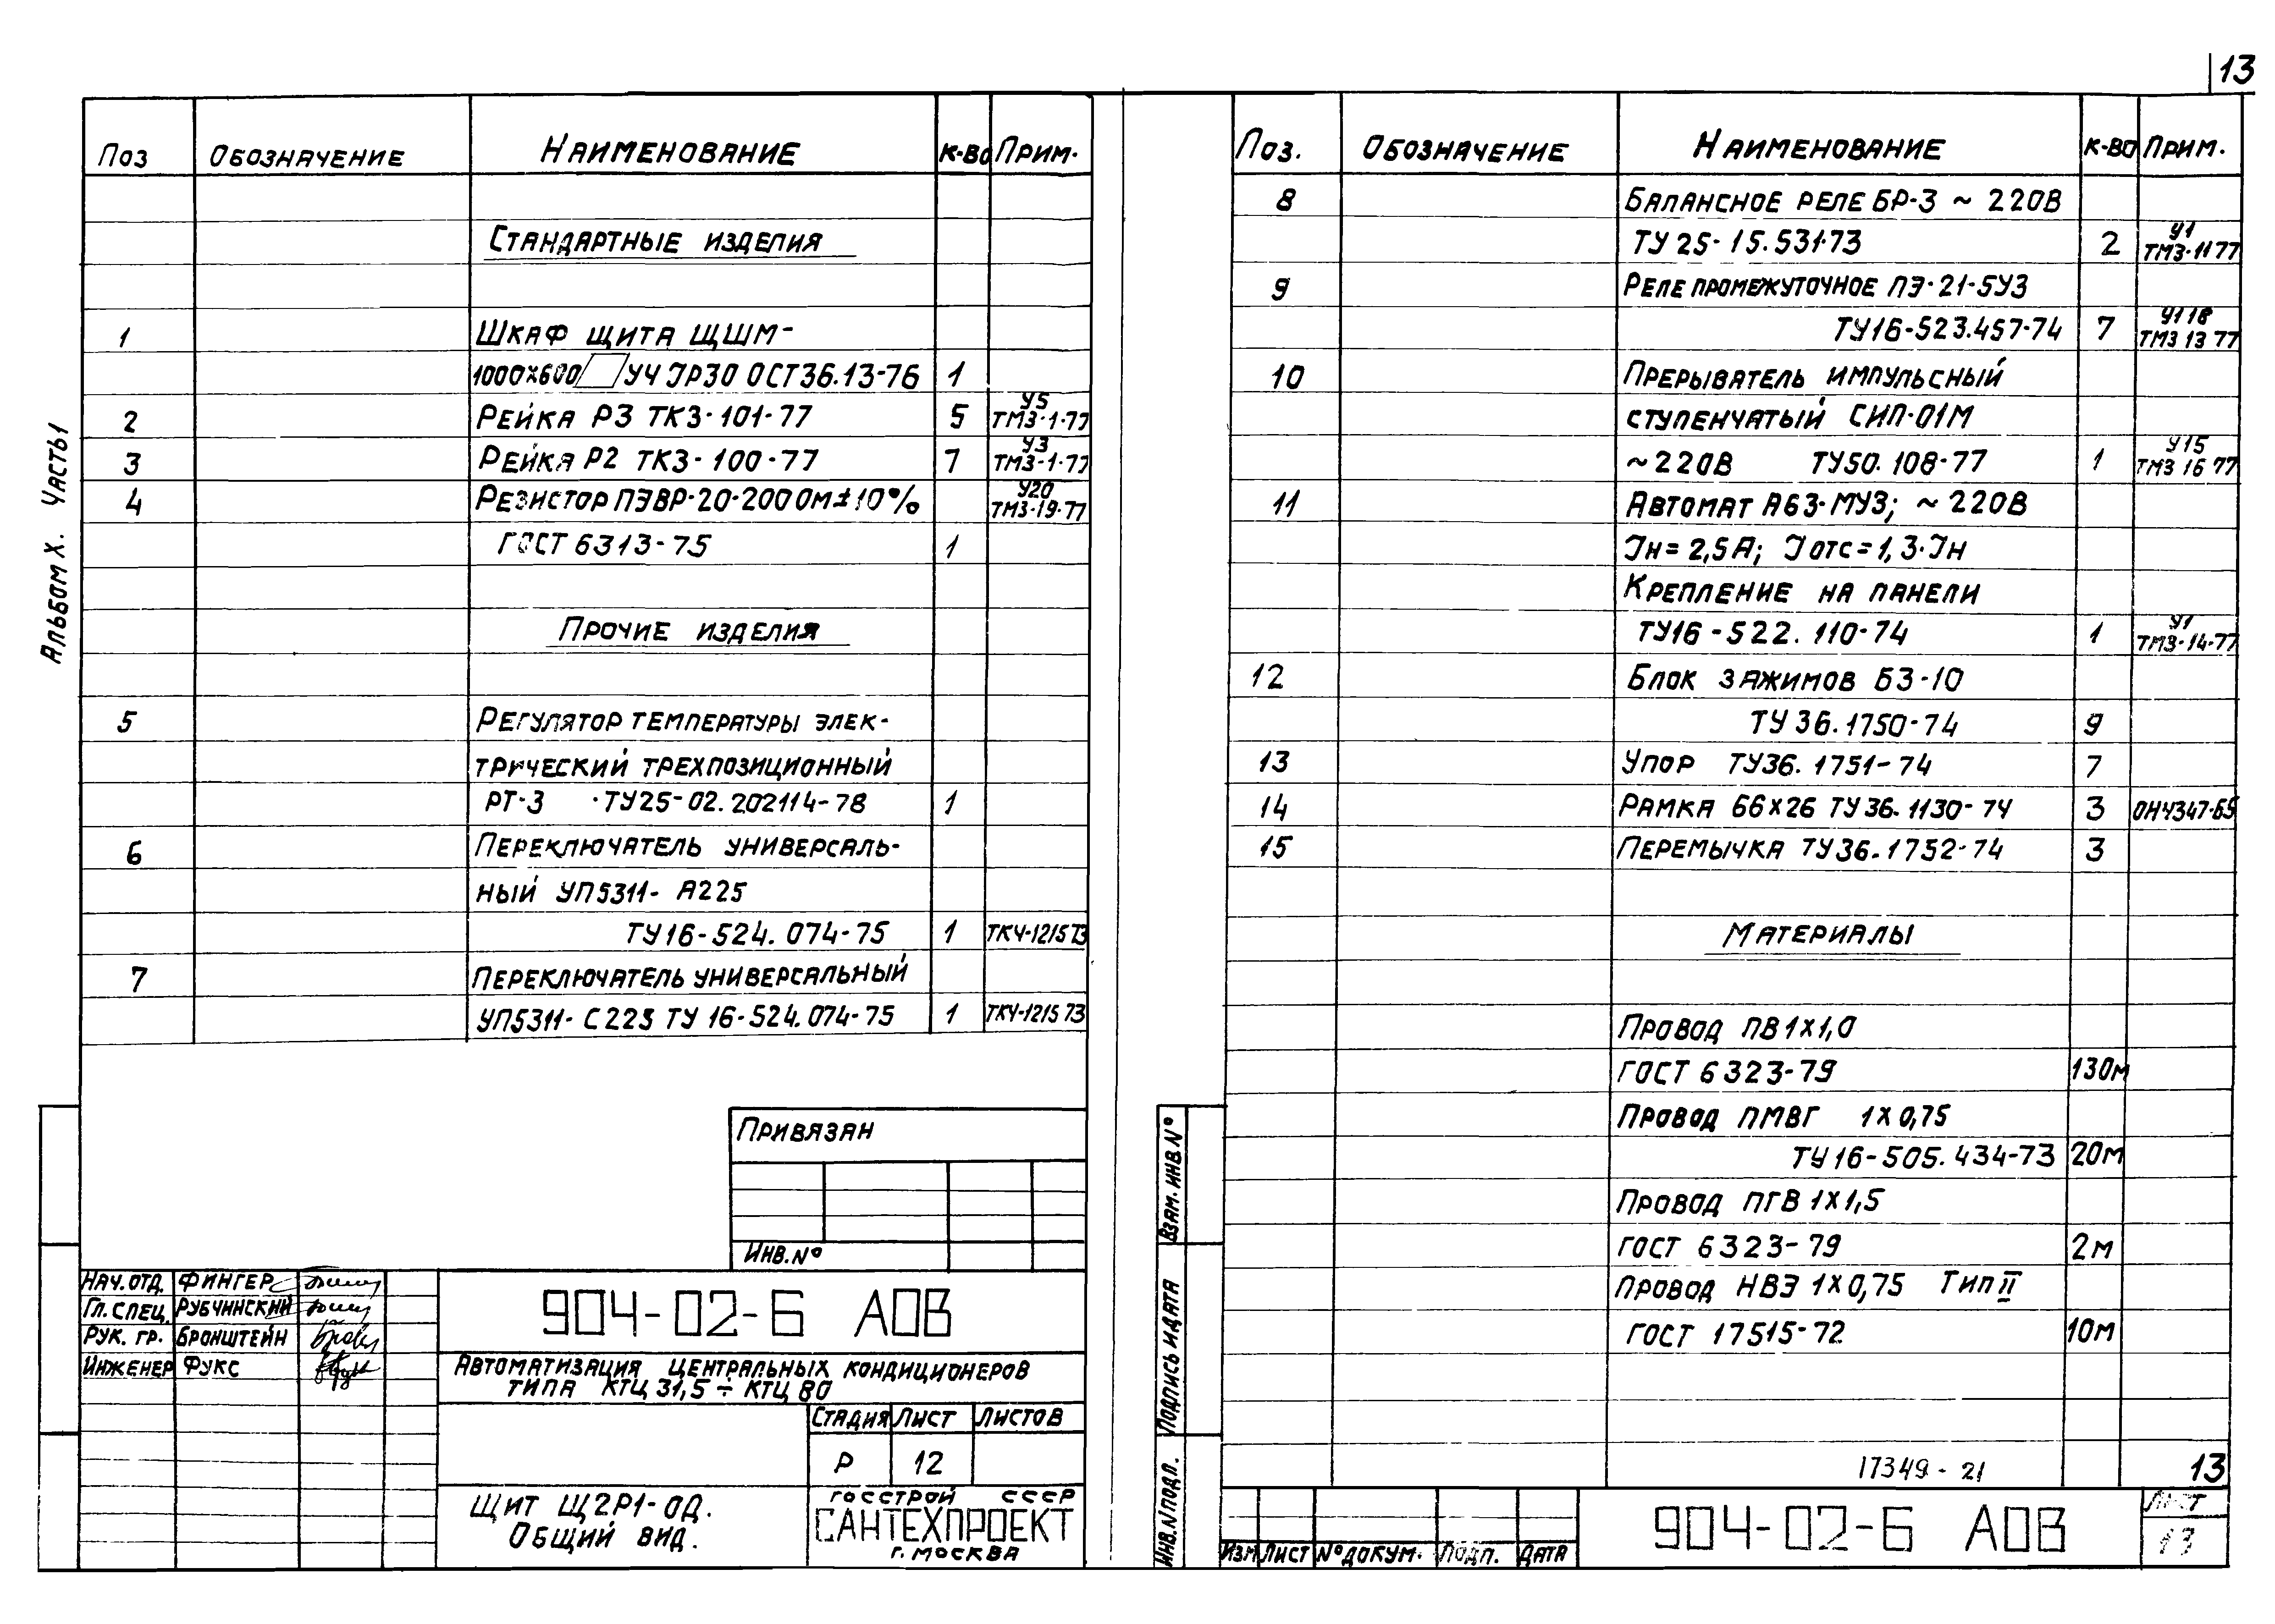 13
Альбом X. Часть 1
Поз Обозначение Наименование К-во Прим.
Стандартные изделия
1 Шкаф щита ЩШМ-
1000х600 УЧ IР30 ОСТ36.13-76 1
2 Рейка Р3 ТК3-101-77 5 У5 ТМ3-1-77
3 Рейка Р2 ТК3-100-77 7 У3 ТМ3-1-77
4 Резистор ПЭВР-20-200 Ом±10% У20 ТМ3-19-77
ГОСТ 6313-75 1
Прочие изделия
5 Регулятор температуры элек-
трический трехпозиционный
РТ-3 ТУ25-02.202114-78 1
6 Переключатель универсаль-
ный УП5311-А225
ТУ16-524.074-75 1 ТК4-1215 73
7 Переключатель универсальный
УП5311-С225 ТУ 16-524.074-75 1 ТК4-1215 73
Привязан
Инв. №
Нач. отд. Фингер
Гл. спец. Рубчинский
Рук. гр. Бронштейн
Инженер Фукс
904-02-6 АОВ
Автоматизация центральных кондиционеров
типа КТЦ 31,5 ÷ КТЦ 80
Стадия Лист Листов
Р 12
Щит Щ2Р1-ОД.
Общий вид.
Госстрой СССР
САНТЕХПРОЕКТ
г. Москва
Поз. Обозначение Наименование К-во Прим.
8 Балансное реле БР-3 ~ 220В
ТУ 25-15.531-73 2 У1 ТМ3-11 77
9 Реле промежуточное ПЭ-21-5У3
ТУ16-523.457-74 7 У118 ТМ3 13 77
10 Прерыватель импульсный
ступенчатый СИП-01М
~220В ТУ50.108-77 1 У15 ТМ3 16 77
11 Автомат А63-МУ3; ~ 220В
Iн = 2,5А; Iотс = 1,3·Iн
Крепление на панели
ТУ16-522.110-74 1 У1 ТМ3-14-77
12 Блок зажимов БЗ-10
ТУ 36.1750-74 9
13 Упор ТУ36.1751-74 7
14 Рамка 66х26 ТУ 36.1130-74 3 ОН4347-65
15 Перемычка ТУ36.1752-74 3
Материалы
Провод ПВ 1х1,0
ГОСТ 6323-79 130м
Провод ПМВГ 1х0,75
ТУ16-505.434-73 20м
Провод ПГВ 1х1,5
ГОСТ 6323-79 2м
Провод НВЭ 1х0,75 Тип II
ГОСТ 17515-72 10м
17349-21 13
Взам. инв. №
Подпись и дата
Инв. № подл.
Изм Лист № докум. Подп. Дата
904-02-6 АОВ
Лист
13